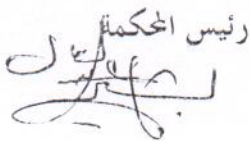 رئيس المحكمة